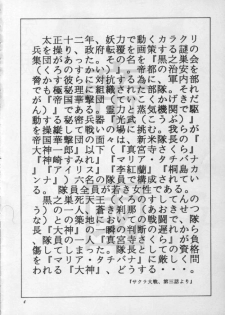 太正十二年、妖力で動くカラクリ
兵を操り、政府転覆を画策する謎の
集団があった。その名を『黒之巣会
(くろのすかい)』。帝都の治安を
脅かす彼らに対抗する為に、軍内部
でも極秘理に組織された部隊。それ
が『帝国華撃団(ていこくかげきだ
ん)』である。霊力と蒸気機関で駆
動する秘密兵器『光武(こうぶ)』
を操縦して戦いの場に挑む。我らが
帝国華撃団の面々は、新米隊長の『
大神一郎』以下『真宮寺さくら』『
神崎すみれ』『マリア・タチバナ』
『アイリス』『李紅蘭』『桐島カ
ンナ』六名の隊員で構成されてい
る。　隊員全員が若き女性である。
黒之巣死天王(くろのすしてんの
う)の一人、蒼き刹那(あおきせつ
な)との築地においての戦闘で、隊
長『大神』の一瞬の判断の遅れから
隊員の一人『真宮寺さくら』が負
傷してしまった。隊長としての資格
を『マリア・タチバナ』に厳しく問
われる『大神』、どうする・・・。
『サクラ大戦、第三話より』
4